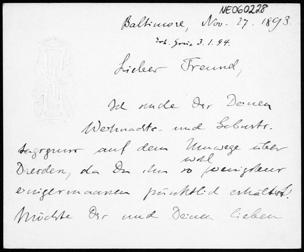 NE060228
Baltimore, Nov. 27. 1893.
3.1.94.
Lieber Freund,
Ich sende Dir Deinen
Weihnachts- und Geburts-
auf dem Umwege über
Dresden, da Du ihn so wohl wenigstens
einigermaassen pünktlich erhältst.
Möchte Dir und Deinen lieben